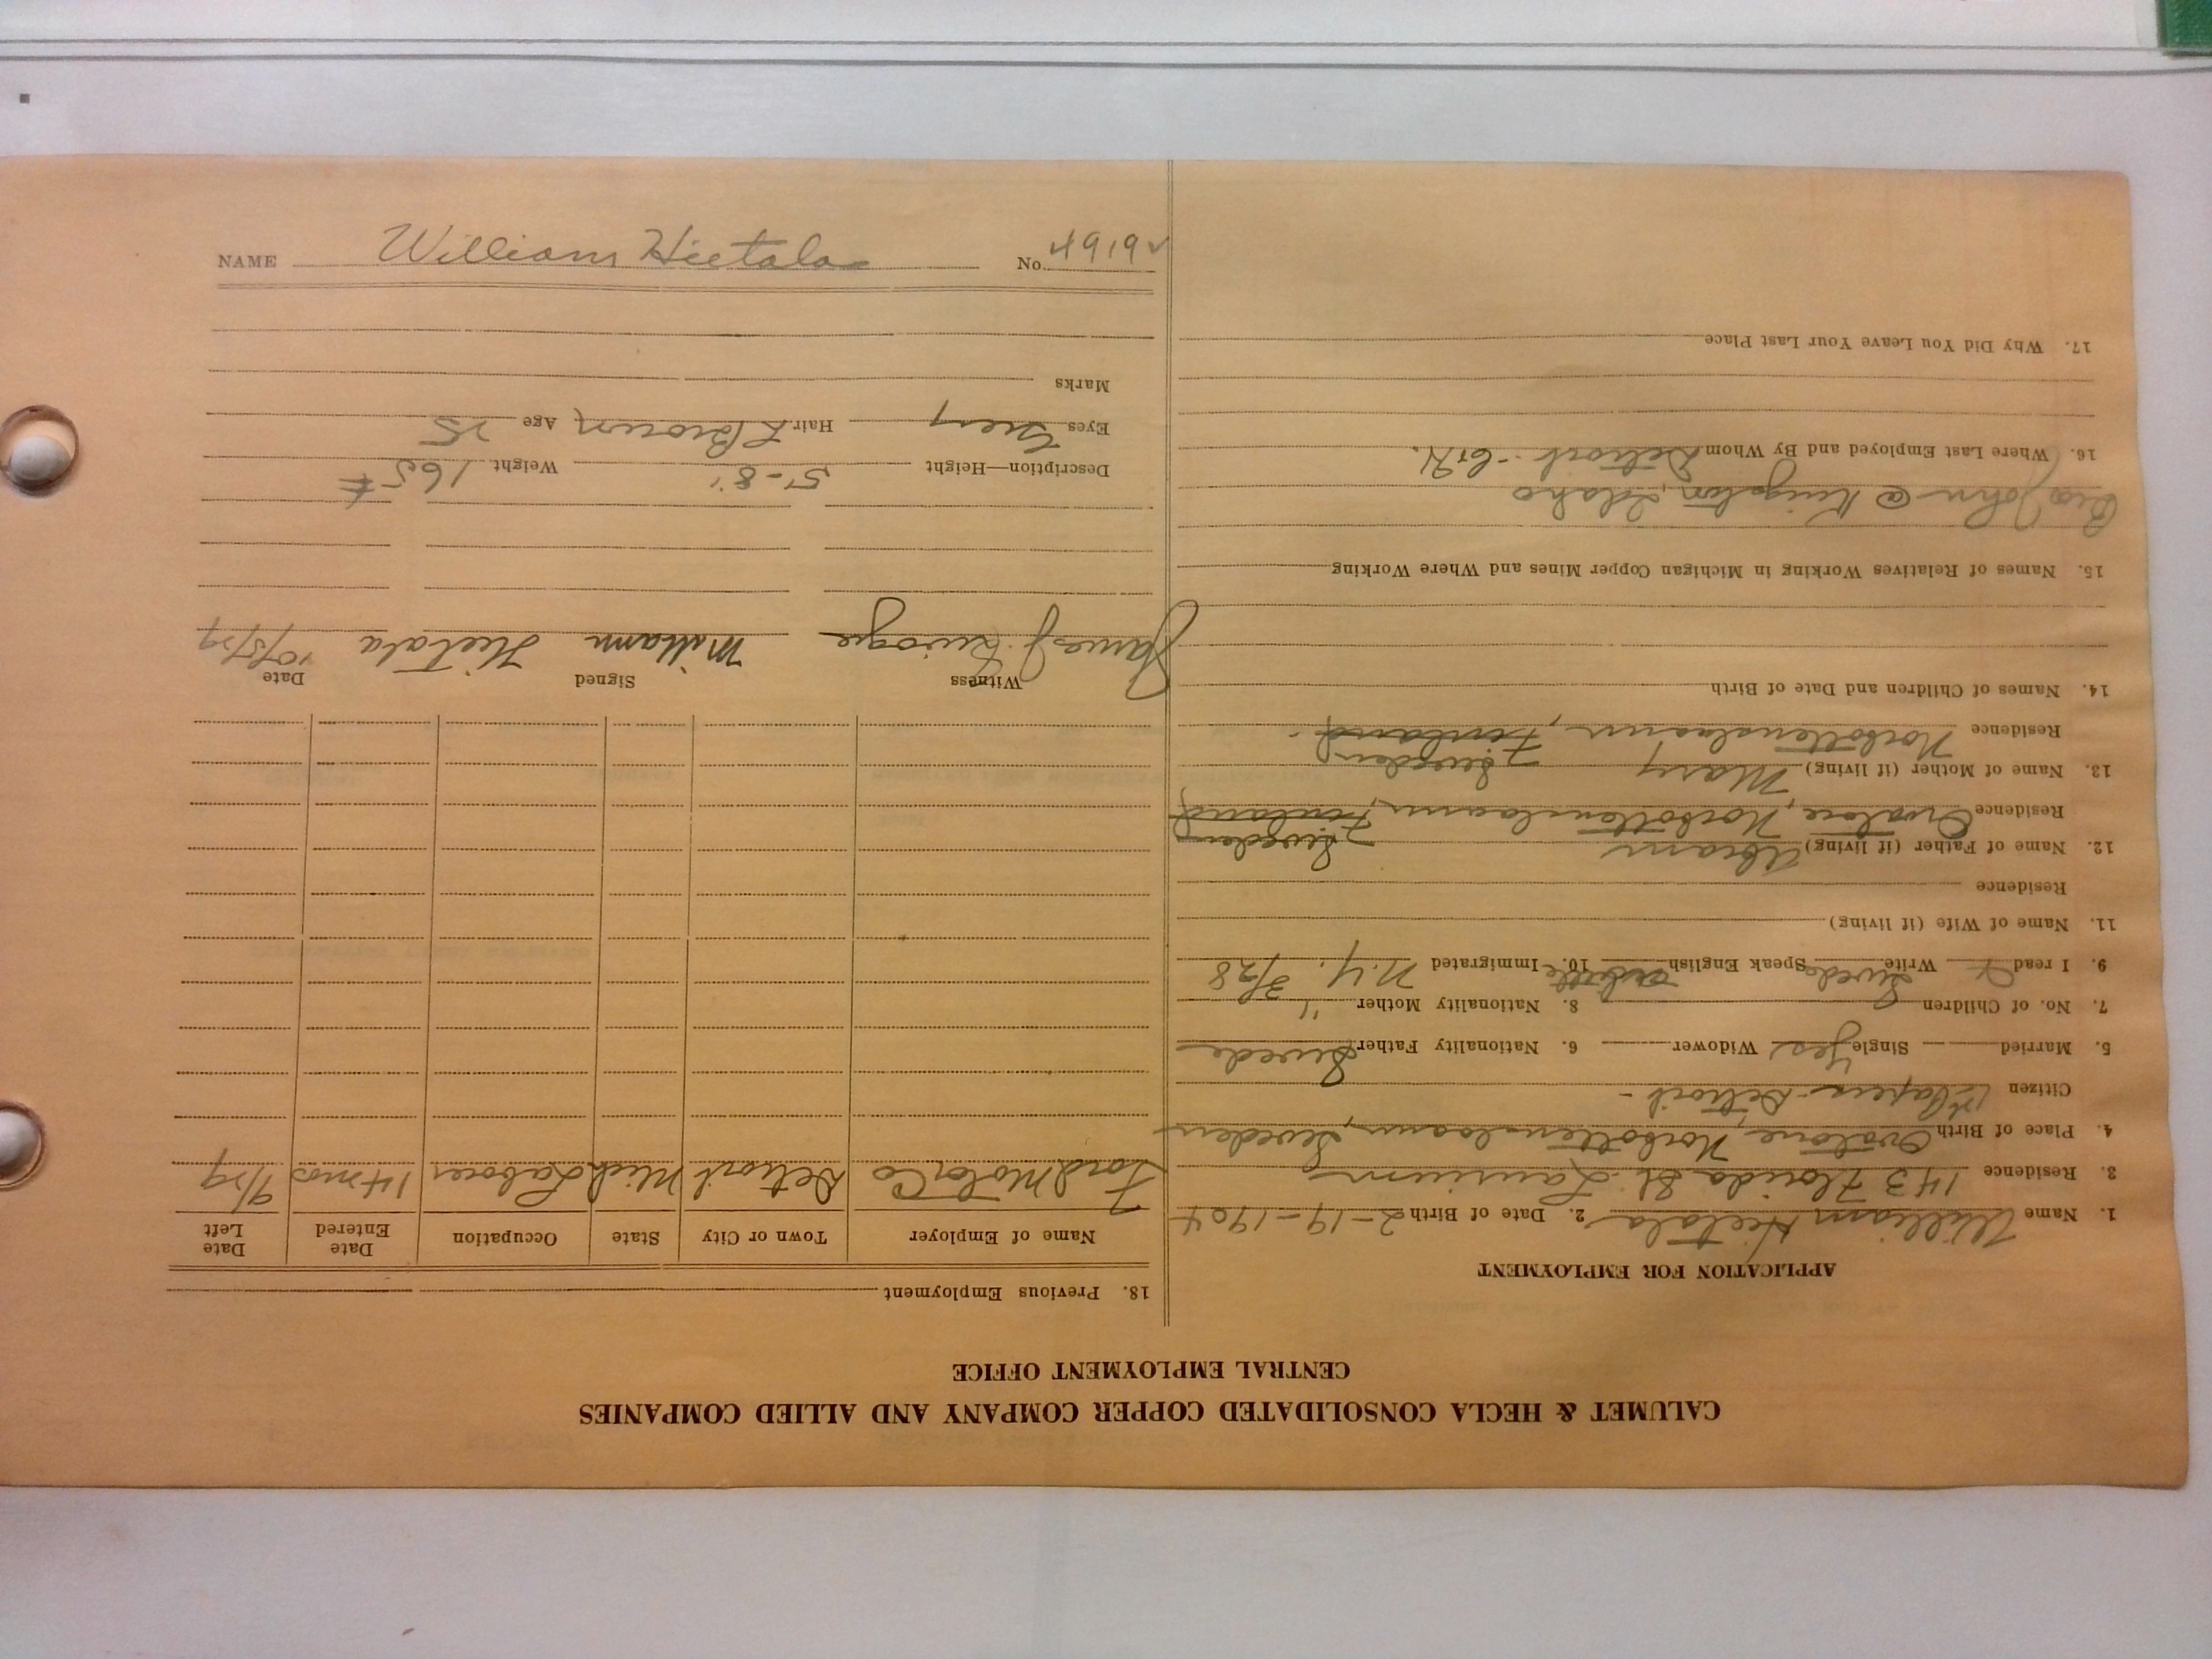 NAME William Hietala No. 4919
CALUMET & HECLA CONSOLIDATED COPPER COMPANY AND ALLIED COMPANIES
CENTRAL EMPLOYMENT OFFICE
APPLICATION FOR EMPLOYMENT
1. Name William Hietala 2. Date of Birth 2-19-1904
3. Residence 143 Florida St. Laurium
4. Place of Birth Ovatore, Norbottenslaann, Sweden
Citizen 1st Papers - Detroit -
5. Married Single Yes Widower 6. Nationality Father Swede
7. No. of Children 8. Nationality Mother "
9. I read Write Swede Speak English a little 10. Immigrated N.Y. 3/28
11. Name of Wife (if living)
Residence
12. Name of Father (if living) Abram Sweden
Residence Ovatore, Norbottenslaann, Finland
13. Name of Mother (if living) Mary Sweden
Residence Norbottenslaann, Finland
14. Names of Children and Date of Birth
15. Names of Relatives Working in Michigan Copper Mines and Where Working
Bro John @ Kingston, Idaho
16. Where Last Employed and By Whom Detroit -
17. Why Did You Leave Your Last Place
18. Previous Employment
Name of Employer Town or City State Occupation Date Entered Date Left
Ford Motor Co Detroit Mich Laborer 14 mos 9/29
Witness Signed Date
James J. William Hietala 10/5/29
Description—Height 5'-8" Weight 165#
Eyes Grey Hair L Brown Age 25
Marks